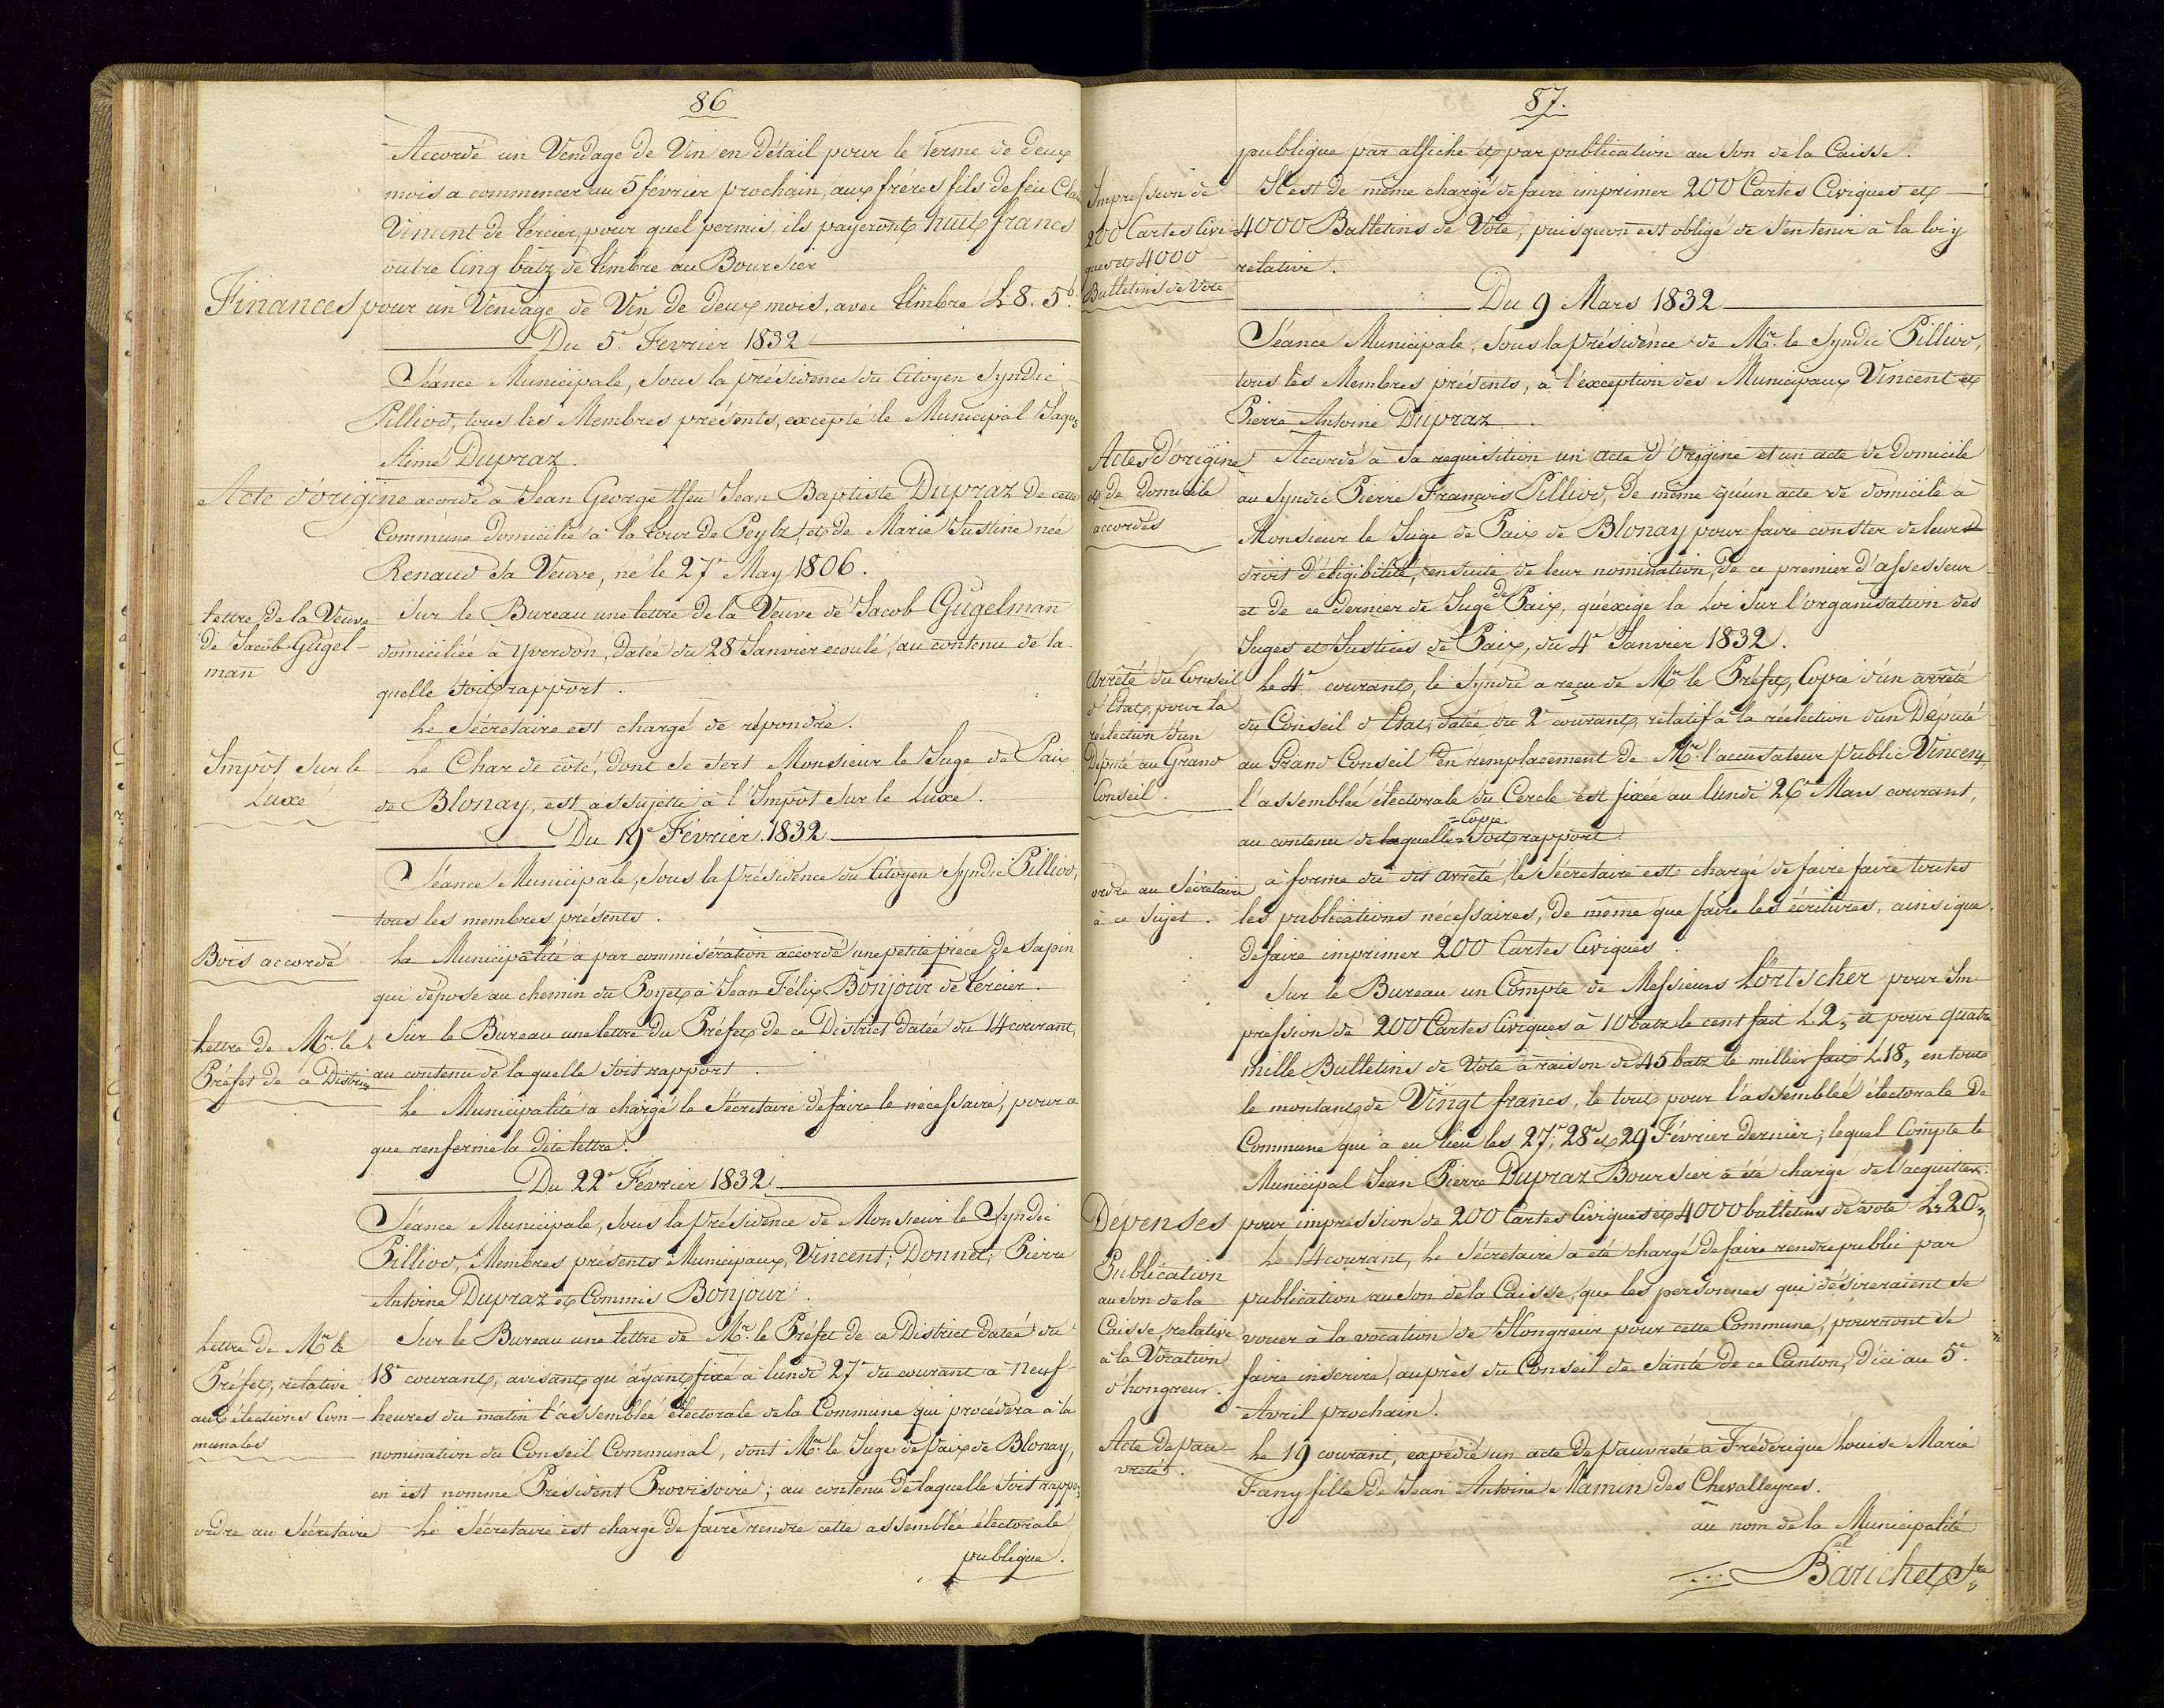 86
Accordé un Vendage de Vin en détail pour le terme de deux
mois a commencer au 5 février prochain, aux fréres fils de feu
Vincent de Tercier, pour quel permis, ils payeront huit francs
outre Cinq batz de timbre au Boursier
Finances pour un Vendage de Vin de deux mois, avec timbre L 8. 5 b.
Du 5e Fevrier 1832
Séance Municipale, sous la présidence du Citoyen Syndic
Pilliod, tous les Membres présents, excepté le Municipal Jaques
Aimé Dupraz.
Acte d'origine accordé à Jean George ffeu Jean Baptiste Dupraz de cette
Commune domicilié à la tour de Peylz, et de Marie Justine née
Renaud sa Veuve, né le 27e May 1806.
Lettre de la Veuve
de Jacob Gügel-
man
Sur le Bureau une lettre de la Veuve de Jacob Gügelman
domiciliée à Yverdon, datée du 28 Janvier écoulé, au contenu de la
quelle soit rapport.
Le Sécretaire est chargé de répondre.
Impôt sur le
Luxe
Le Char de côté, dont se sert Monsieur le Juge de Paix
de Blonay, est assujetti à l'Impôt sur le Luxe.
Du 19e Février 1832
Séance Municipale, sous la Présidence du Citoyen Syndic Pilliod,
tous les membres présents.
Bois accordé
La Municipalité a par commisération accordé une petite piéce de sapin
qui dépose au chemin du Poyet à Jean Félix Bonjour de Tércier.
Lettre de Mr. le
Préfet de ce District
Sur le Bureau une lettre du Préfet de ce District datée du 14 courant,
au contenu de la quelle soit rapport.
La Municipalité a chargé le Sécretaire de faire le nécessaire, pour ce
que renferme la dite lettre.
Du 22e Février 1832
Séance Municipale, sous la Présidence de Monsieur le Syndic
Pilliod, Membres présents Municipaux, Vincent; Donnet; Pierre
Antoine Dupraz et Commis Bonjour.
Lettre de Mr le
Préfet, relative
aux élections Com-
munales
Sur le Bureau une lettre de Mr. le Préfet de ce District datée du
18e courant, avisant qu'ayant fixé à lundi 27e du courant à neuf
heures du matin l'assemblée électorale de la Commune qui procédera à la
nomination du Conseil Communal, dont Mr. le Juge de paix de Blonay,
en est nommé Président Provisoire; au contenu de laquelle soit rapport
ordre au Sécretaire
Le Sécretaire est chargé de faire rendre cette assemblée électorale
publique.
87.
publique par affiche et par publication au son de la Caisse.
Impression de
200 Cartes Civi-
ques et 4000
Bulletins de Vote
Il est de même chargé de faire imprimer 200 Cartes Civiques et
4000 Bulletins de Vote, puisqu'on est obligé de s'entenir à la loi y
relative.
Du 9 Mars 1832
Séance Municipale, sous la présidence de Mr. le Syndic Pilliod,
tous les Membres présents, à l'exception des Municipaux Vincent et
Pierre Antoine Dupraz.
Actes d'origine
et de domicile
accordés
Accordé à sa requisition un acte d'Origine et un acte de domicile
au Syndic Pierre François Pilliod, de même qu'un acte de domicile à
Monsieur le Juge de Paix de Blonay pour faire conster de leurs
droit d'éligibilité, ensuite de leur nomination, de ce premier d'assesseur
et de ce dernier de Juge de Paix, qu'exige la Loi sur l'organisation des
Juges et Justices de Paix, du 4e Janvier 1832.
Arrêté du Conseil
d'Etat, pour la
réélection d'un
Député au Grand
Conseil.
Le 4e courant, le Syndic a reçu de Mr le Préfet, Copie d'un arrêté
du Conseil d'Etat, datée du 2e courant, relatif à la réélection d'un Député
au Grand Conseil en remplacement de Mr. l'accusateur public Vincent,
l'assemblée électorale du Cercle est fixée au lundi 26e Mars courant,
au contenu de laquelle =Copie soit rapport.
ordre au Sécretaire
à ce sujet.
a forme du dit arrêté, le Sécretaire est chargé de faire faire toutes
les publications nécessaires, de même que faire les écritures, ainsi que
de faire imprimer 200 Cartes Civiques.
Sur le Bureau un Compte de Messieurs Lörtscher pour Im-
pression de 200 Cartes Civiques à 10 batz le cent fait L 2,, et pour quatre
mille Bulletins de Vote à raison de 45 batz le millier fait L 18,, en tout
le montant de Vingt francs, le tout pour l'assemblée électorale de
Commune qui a eu lieu les 27e, 28e et 29 Février dernier; lequel Compte le
Municipal Jean Pierre Dupraz Boursier a été chargé de l'acquitter.
Dépenses pour impression de 200 Cartes Civiques et 4000 bulletins de vote L,, 20,,
Publication
au son de la
Caisse, relative
à la Vocation
d'hongreur.
Le 14 courant, le Sécretaire a été chargé de faire rendre public par
publication au son de la Caisse, que les personnes qui désireraient se
vouer à la vocation de Hongreur pour cette Commune, pourront se
faire inscrire, auprès du Conseil de Santé de ce Canton, d'ici au 5e.
Avril prochain.
Acte de pau-
vreté.
Le 19 courant, expédié un acte de pauvreté à Fréderique Louise Marie
Fany fille de Jean Antoine Mamin des Chevalleyres.
au nom de la Municipalité
Barichet Sre